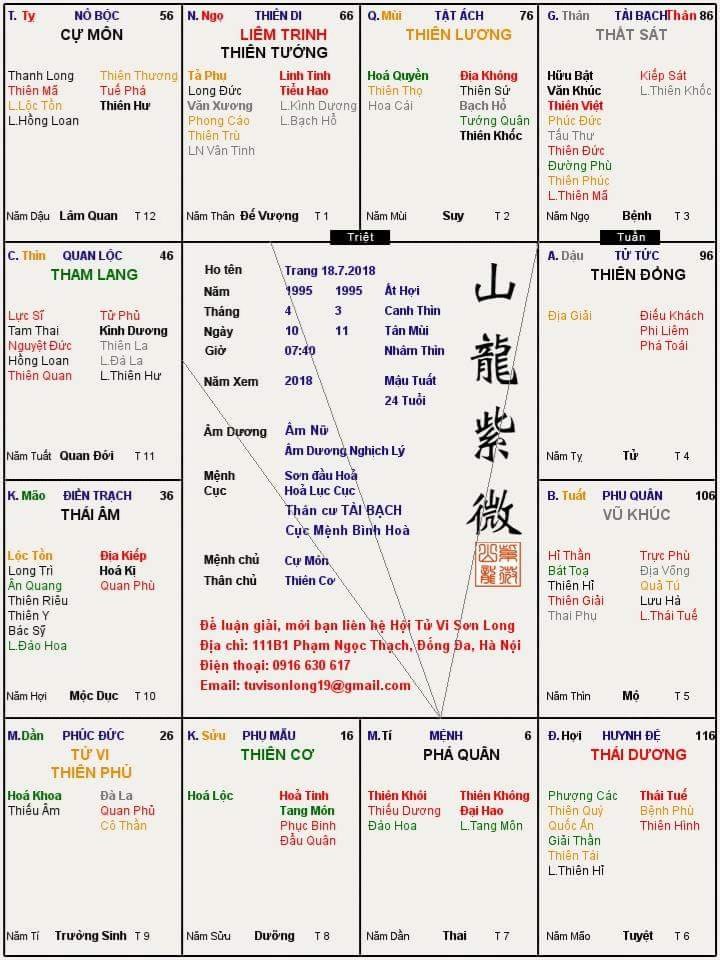 T. Tỵ NÔ BỘC 56
CỰ MÔN
Thanh Long Thiên Thương
Thiên Mã Tuế Phá
L.Lộc Tồn Thiên Hư
L.Hồng Loan
Năm Dậu Lâm Quan T 12
N. Ngọ THIÊN DI 66
LIÊM TRINH
THIÊN TƯỚNG
Tả Phu Linh Tinh
Long Đức Tiểu Hao
Văn Xương L.Kình Dương
Phong Cáo L.Bạch Hổ
Thiên Trù
LN Văn Tinh
Năm Thân Đế Vượng T 1
Q. Mùi TẬT ÁCH 76
THIÊN LƯƠNG
Hoá Quyền Địa Không
Thiên Thọ Thiên Sứ
Hoa Cái Bạch Hổ
Tướng Quân
Thiên Khốc
Năm Mùi Suy T 2
G. Thân TÀI BẠCH Thân 86
THẤT SÁT
Hữu Bật Kiếp Sát
Văn Khúc L.Thiên Khốc
Thiên Việt
Phúc Đức
Tấu Thư
Thiên Đức
Đường Phù
Thiên Phúc
L.Thiên Mã
Năm Ngọ Bệnh T 3
Triệt
Tuần
C. Thìn QUAN LỘC 46
THAM LANG
Lực Sĩ Tử Phù
Tam Thai Kình Dương
Nguyệt Đức Thiên La
Hồng Loan L.Đà La
Thiên Quan L.Thiên Hư
Năm Tuất Quan Đới T 11
Ho tên Trang 18.7.2018
Năm 1995 1995 Ất Hợi
Tháng 4 3 Canh Thìn
Ngày 10 11 Tân Mùi
Giờ 07:40 Nhâm Thìn
Năm Xem 2018 Mậu Tuất
24 Tuổi
Âm Dương Âm Nữ
Âm Dương Nghịch Lý
Mệnh Sơn đầu Hoả
Cục Hoả Lục Cục
Thân cư TÀI BẠCH
Cục Mệnh Bình Hoà
Mệnh chủ Cự Môn
Thân chủ Thiên Cơ
Để luận giải, mời bạn liên hệ Hội Tử Vi Sơn Long
Địa chỉ: 111B1 Phạm Ngọc Thạch, Đống Đa, Hà Nội
Điện thoại: 0916 630 617
Email: tuvisonlong19@gmail.com
山
龍
紫
微
A. Dậu TỬ TỨC 96
THIÊN ĐỒNG
Địa Giải Điếu Khách
Phi Liêm
Phá Toái
Năm Tỵ Tử T 4
K. Mão ĐIỀN TRẠCH 36
THÁI ÂM
Lộc Tồn Địa Kiếp
Long Trì Hoá Kị
Ân Quang Quan Phù
Thiên Riêu
Thiên Y
Bác Sỹ
L.Đào Hoa
Năm Hợi Mộc Dục T 10
B. Tuất PHU QUÂN 106
VŨ KHÚC
Hỉ Thần Trực Phù
Bát Toạ Địa Võng
Thiên Hỉ Quả Tú
Thiên Giải Lưu Hà
Thai Phụ L.Thái Tuế
Năm Thìn Mộ T 5
M.Dần PHÚC ĐỨC 26
TỬ VI
THIÊN PHỦ
Hoá Khoa Đà La
Thiếu Âm Quan Phủ
Cô Thần
Năm Tí Trường Sinh T 9
K. Sửu PHỤ MẪU 16
THIÊN CƠ
Hoá Lộc Hoả Tinh
Tang Môn
Phục Binh
Đẩu Quân
Năm Sửu Dưỡng T 8
M.Tí MỆNH 6
PHÁ QUÂN
Thiên Khôi Thiên Không
Thiếu Dương Đại Hao
Đào Hoa L.Tang Môn
Năm Dần Thai T 7
Đ.Hợi HUYNH ĐỆ 116
THÁI DƯƠNG
Phượng Các Thái Tuế
Thiên Quý Bệnh Phù
Quốc Ấn Thiên Hình
Giải Thần
Thiên Tài
L.Thiên Hỉ
Năm Mão Tuyệt T 6